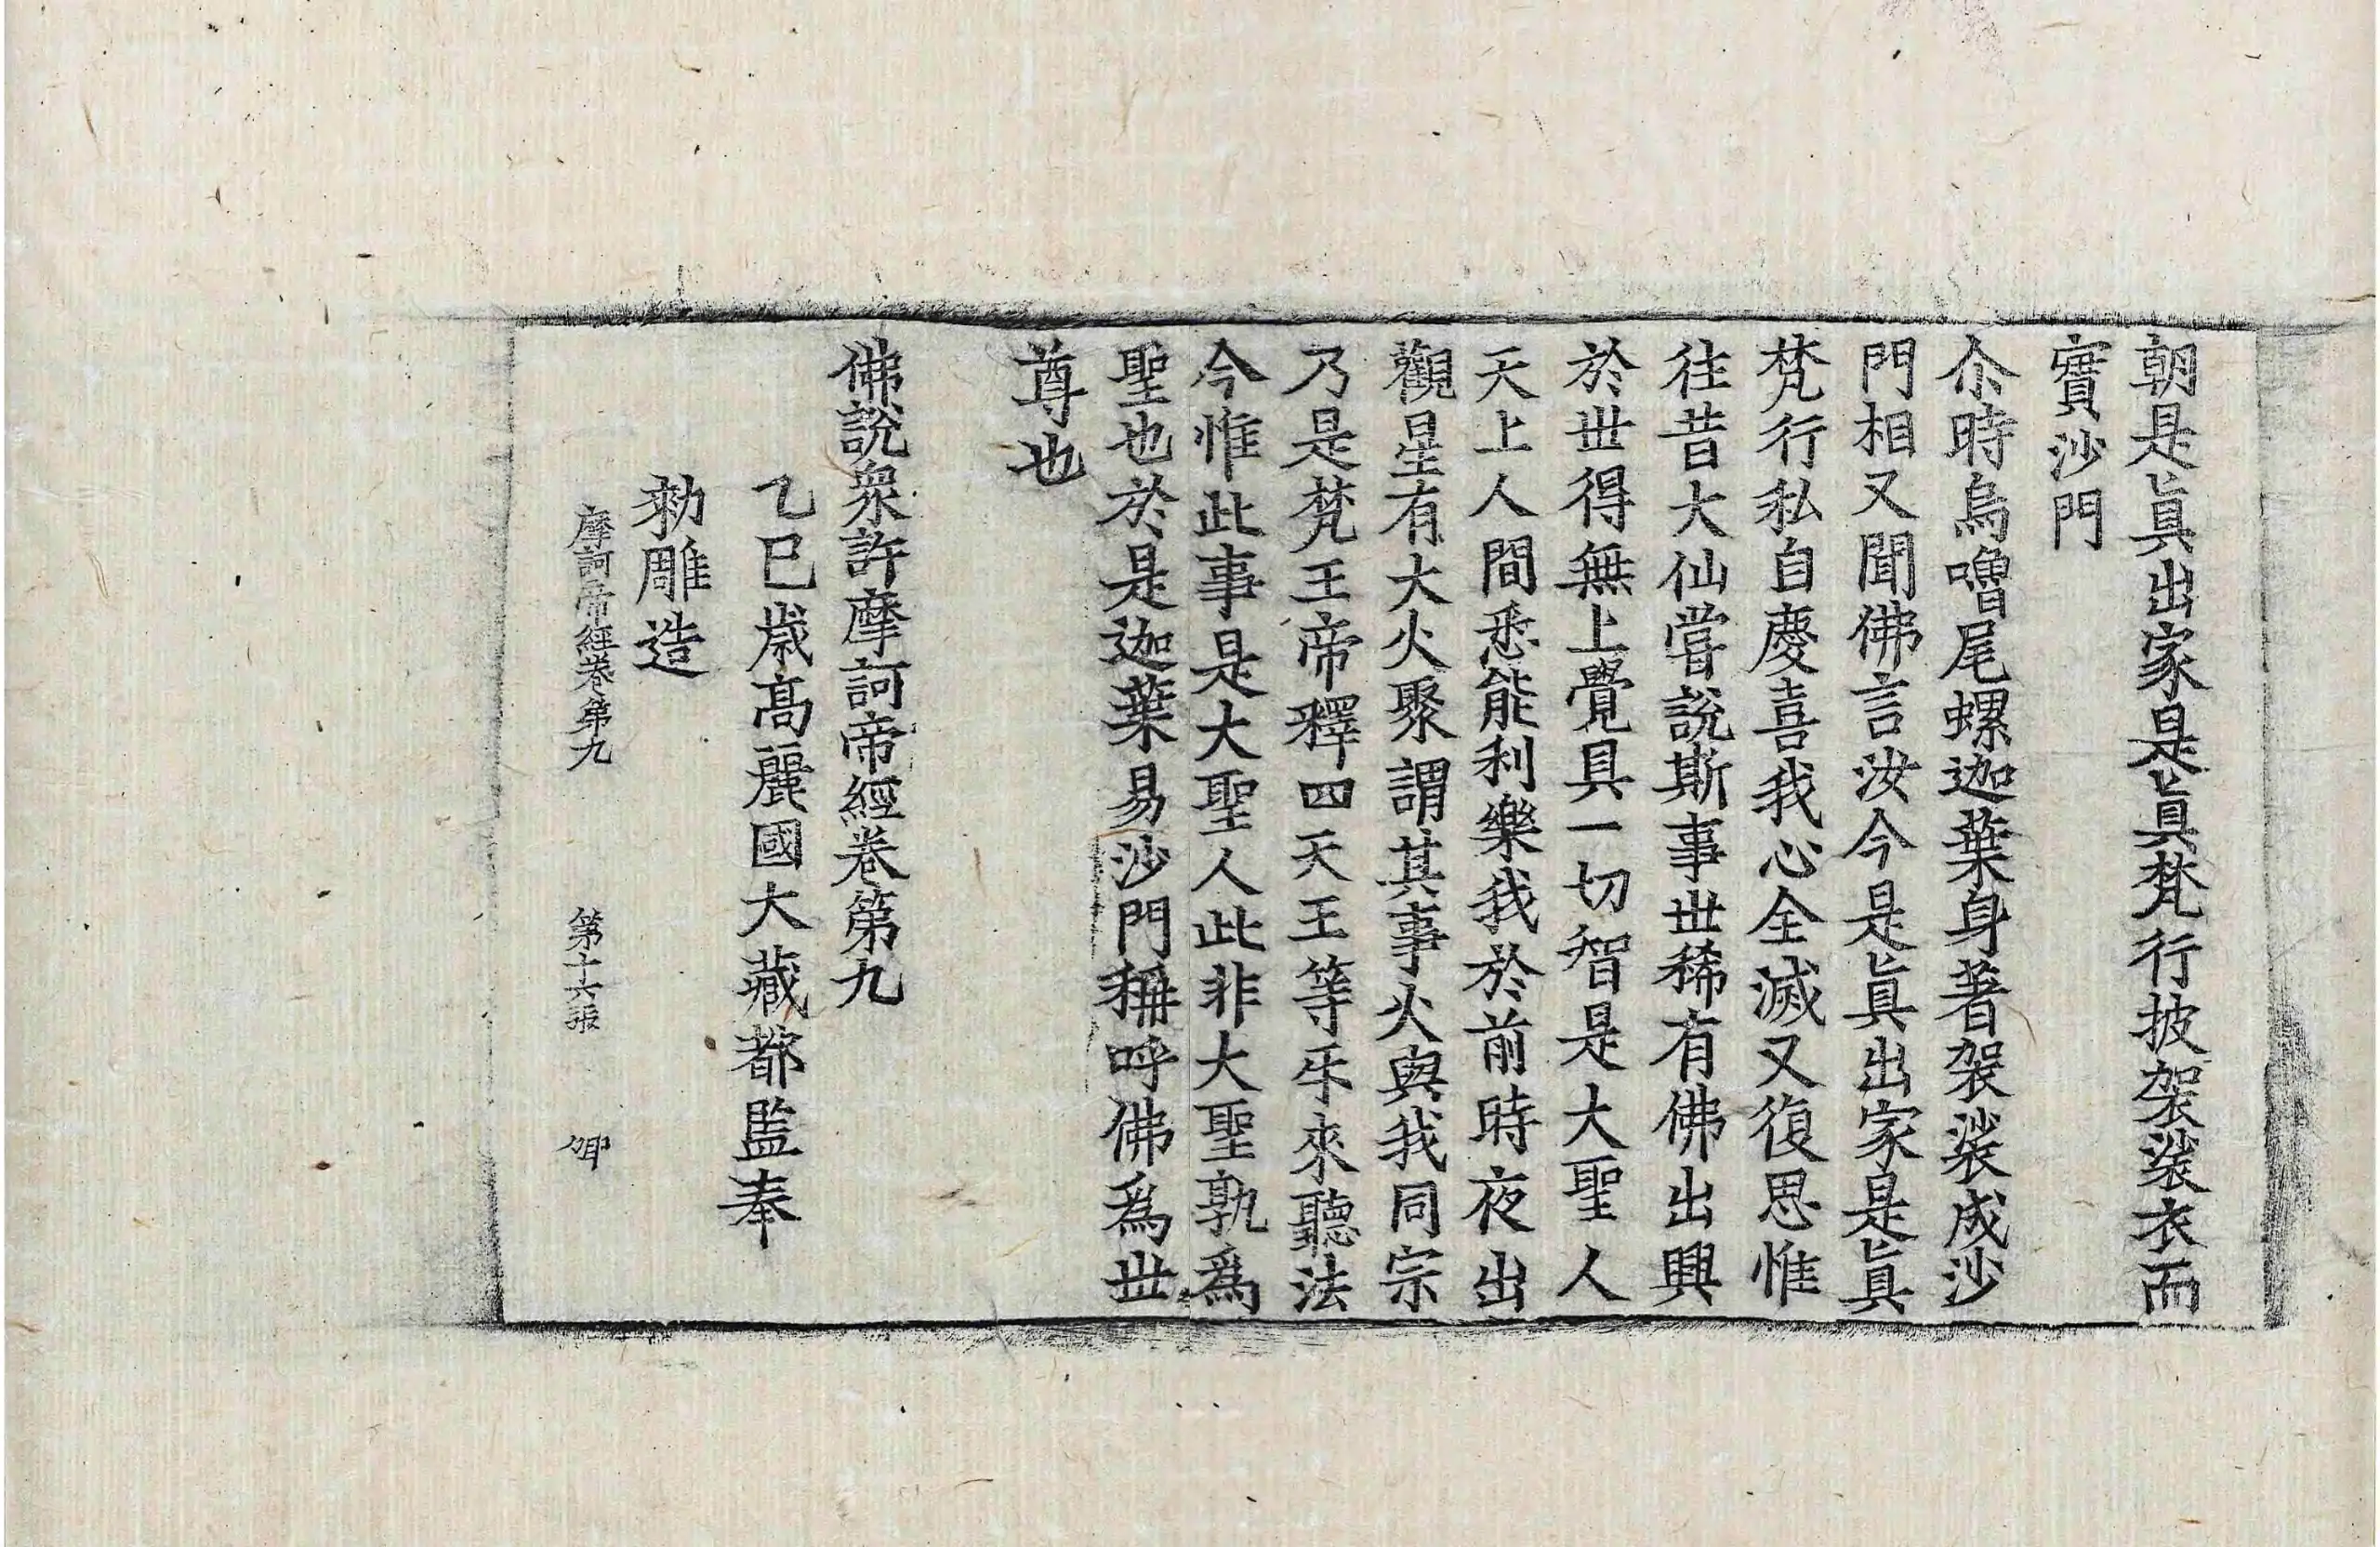 朝是眞出家是眞梵行披袈裟衣而
實沙門
尒時烏嚕尾螺迦葉身著袈裟成沙
門相又聞佛言汝今是眞出家是眞
梵行私自慶喜我心全滅又復思惟
往昔大仙甞說斯事世稀有佛出興
於世得無上覺具一切智是大聖人
天上人間悉能利樂我於前時夜出
觀星有大火聚謂其事火與我同宗
乃是梵王帝釋四天王等乐來聽法
今惟此事是大聖人此非大聖孰爲
聖也於是迦葉易沙門稱呼佛爲世
尊也
佛說衆許摩訶帝經卷第九
乙巳歲高麗國大藏都監奉
勑雕造
摩訶帝經卷第九 第十六張 卿